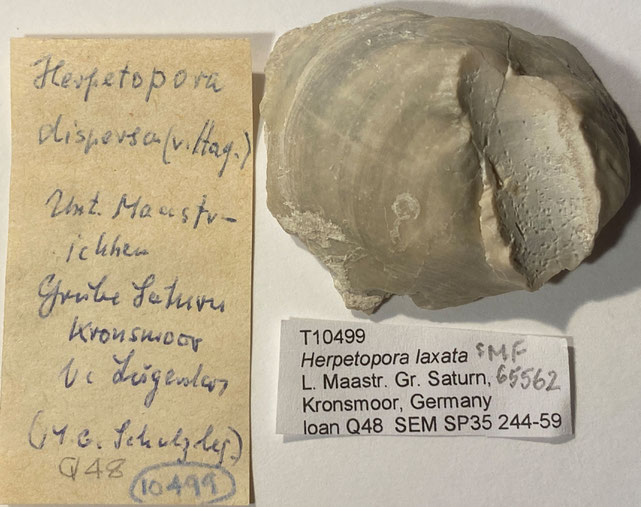 Herpetopora
dispersa (v. Hag.)
Unt. Maastr-
ichtien
Grube Saturn
Kronsmoor
(M. G. Schulz leg.)
Q48
10499
T10499
Herpetopora laxata SMF
L. Maastr. Gr. Saturn, 65562
Kronsmoor, Germany
loan Q48 SEM SP35 244-59